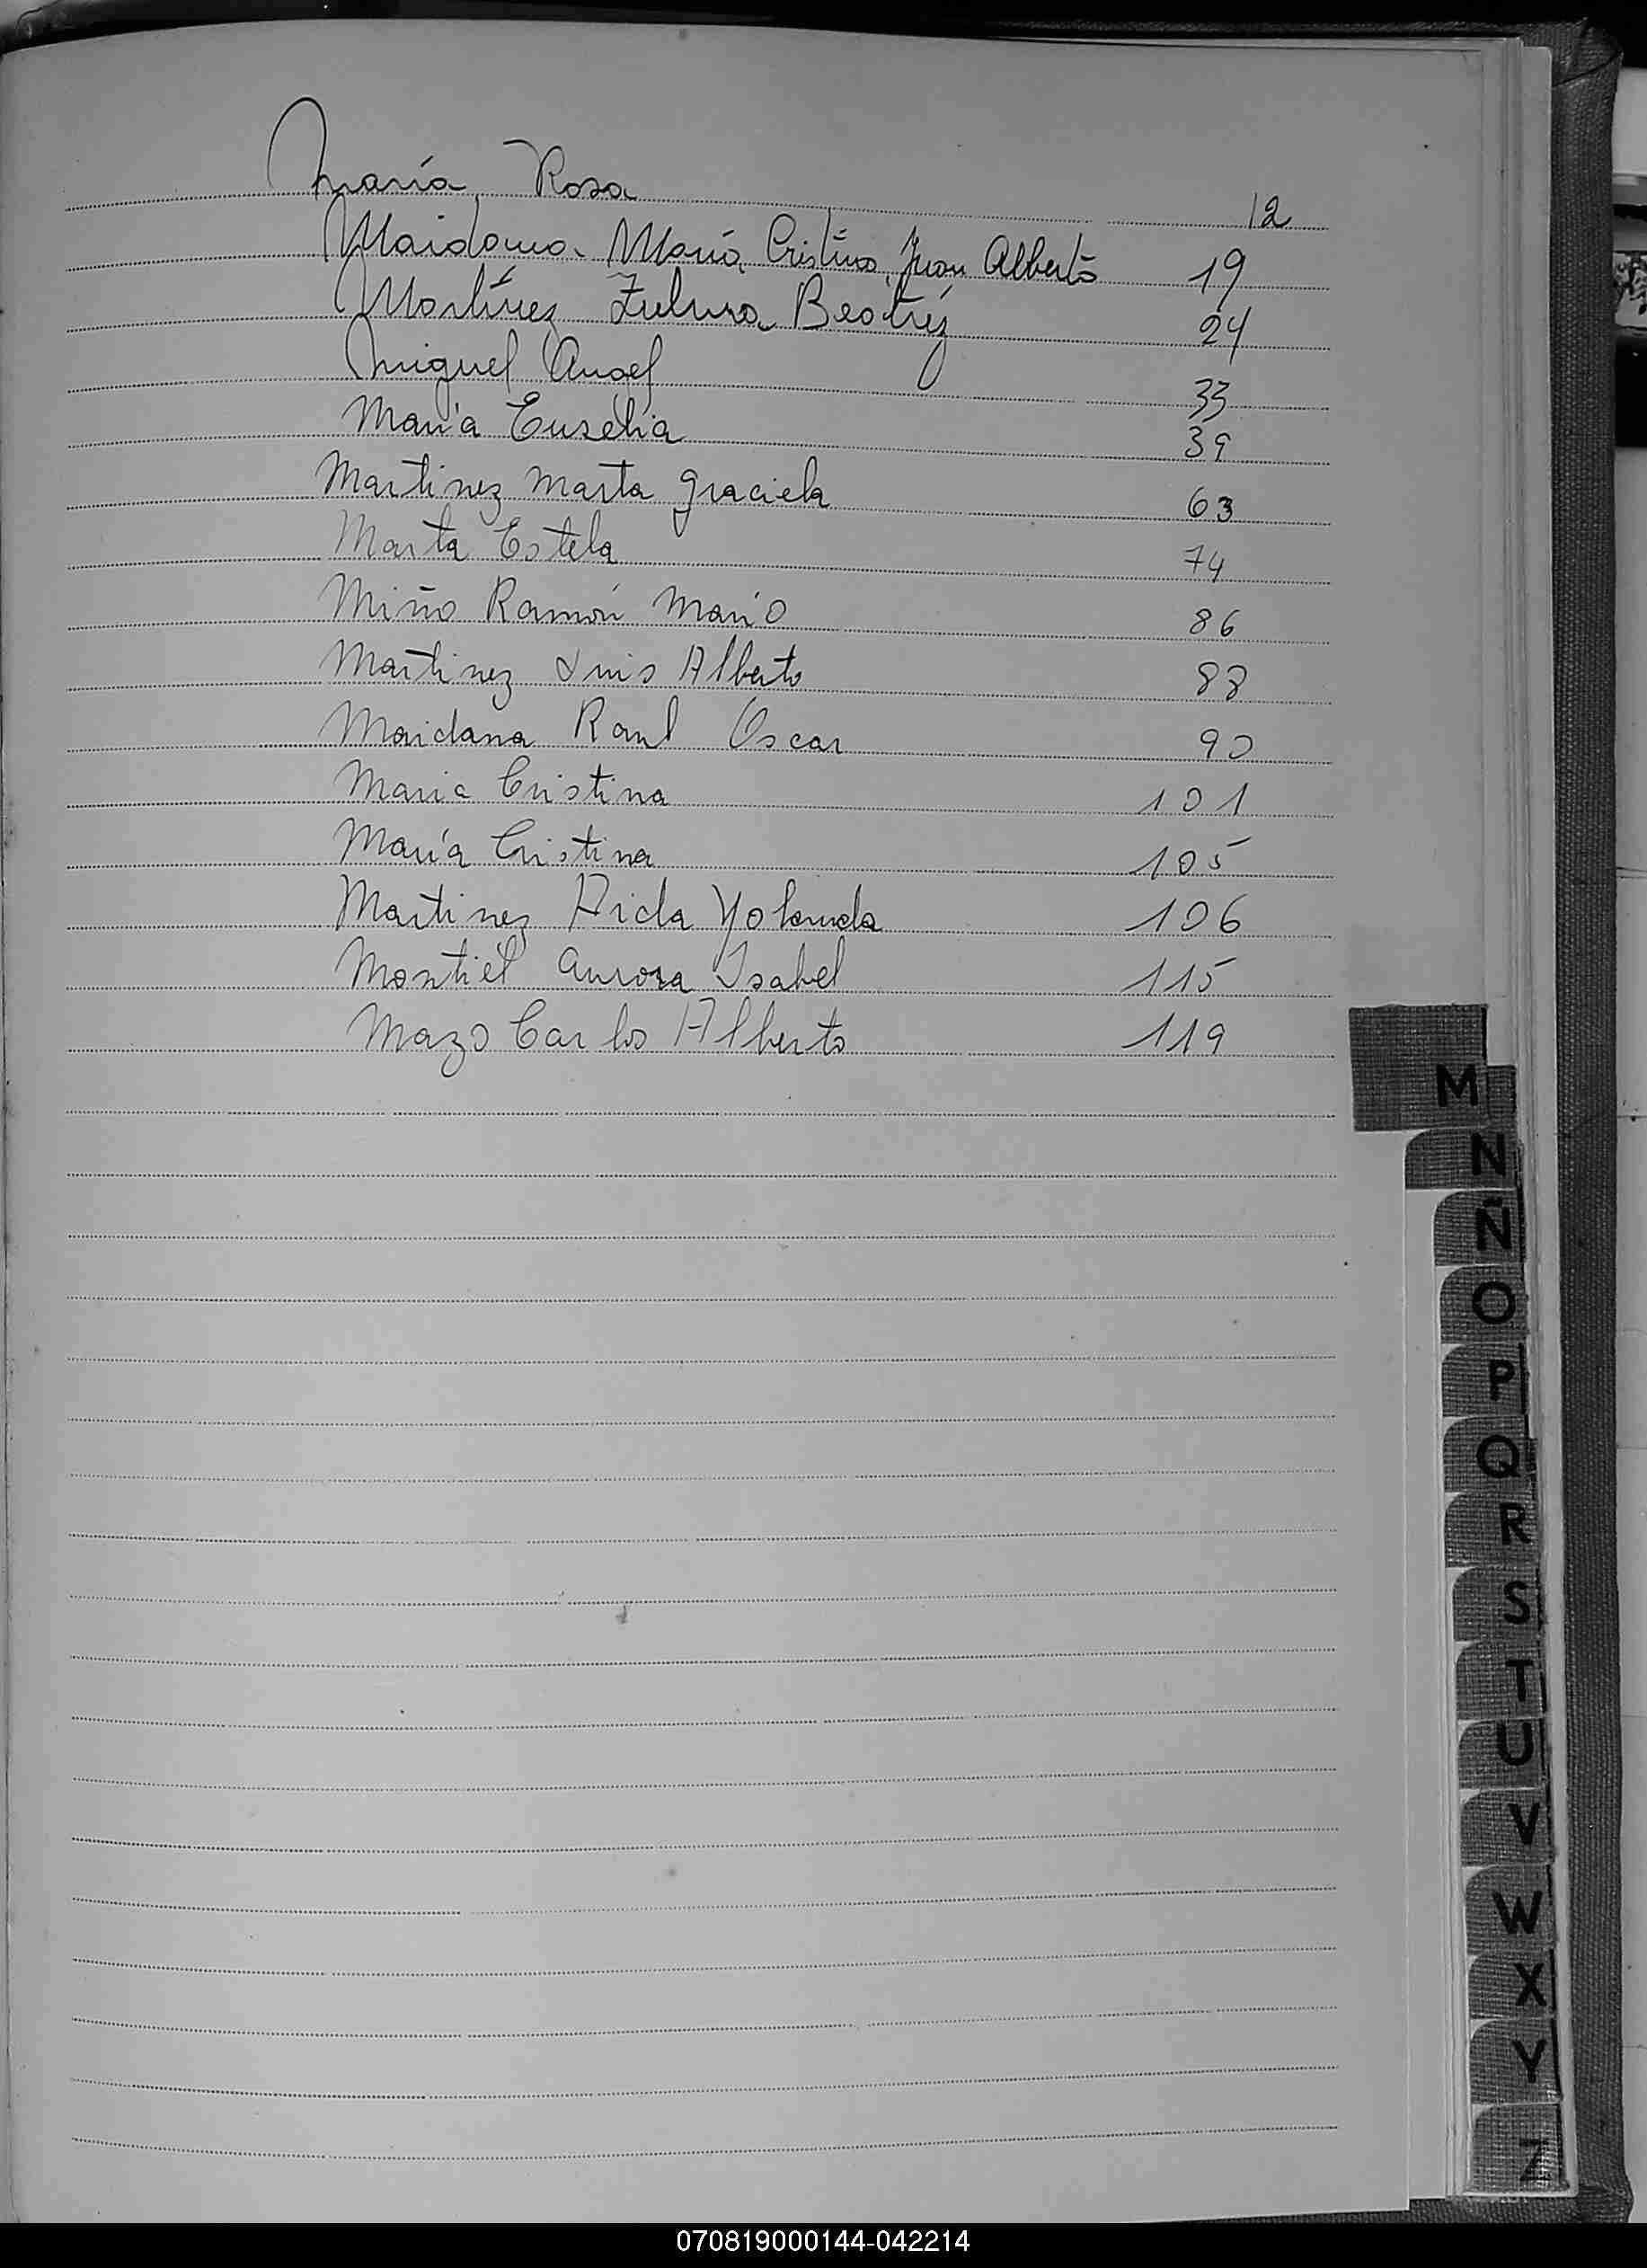 María Rosa 12
Maidana María Cristina, Juan Alberto 19
Martínez Zulma Beatríz 24
Miguel Angel 33
María Eusebia 39
Martinez Marta Graciela 63
Marta Estela 74
Miño Ramón Mario 86
Martinez Luis Alberto 88
Maidana Raul Oscar 90
Maria Cristina 101
María Cristina 105
Martinez Aida Yolanda 106
Montiel Aurora Isabel 115
Mazo Carlos Alberto 119
M
N
Ñ
O
P
Q
R
S
T
U
V
W
X
Y
Z
070819000144-042214